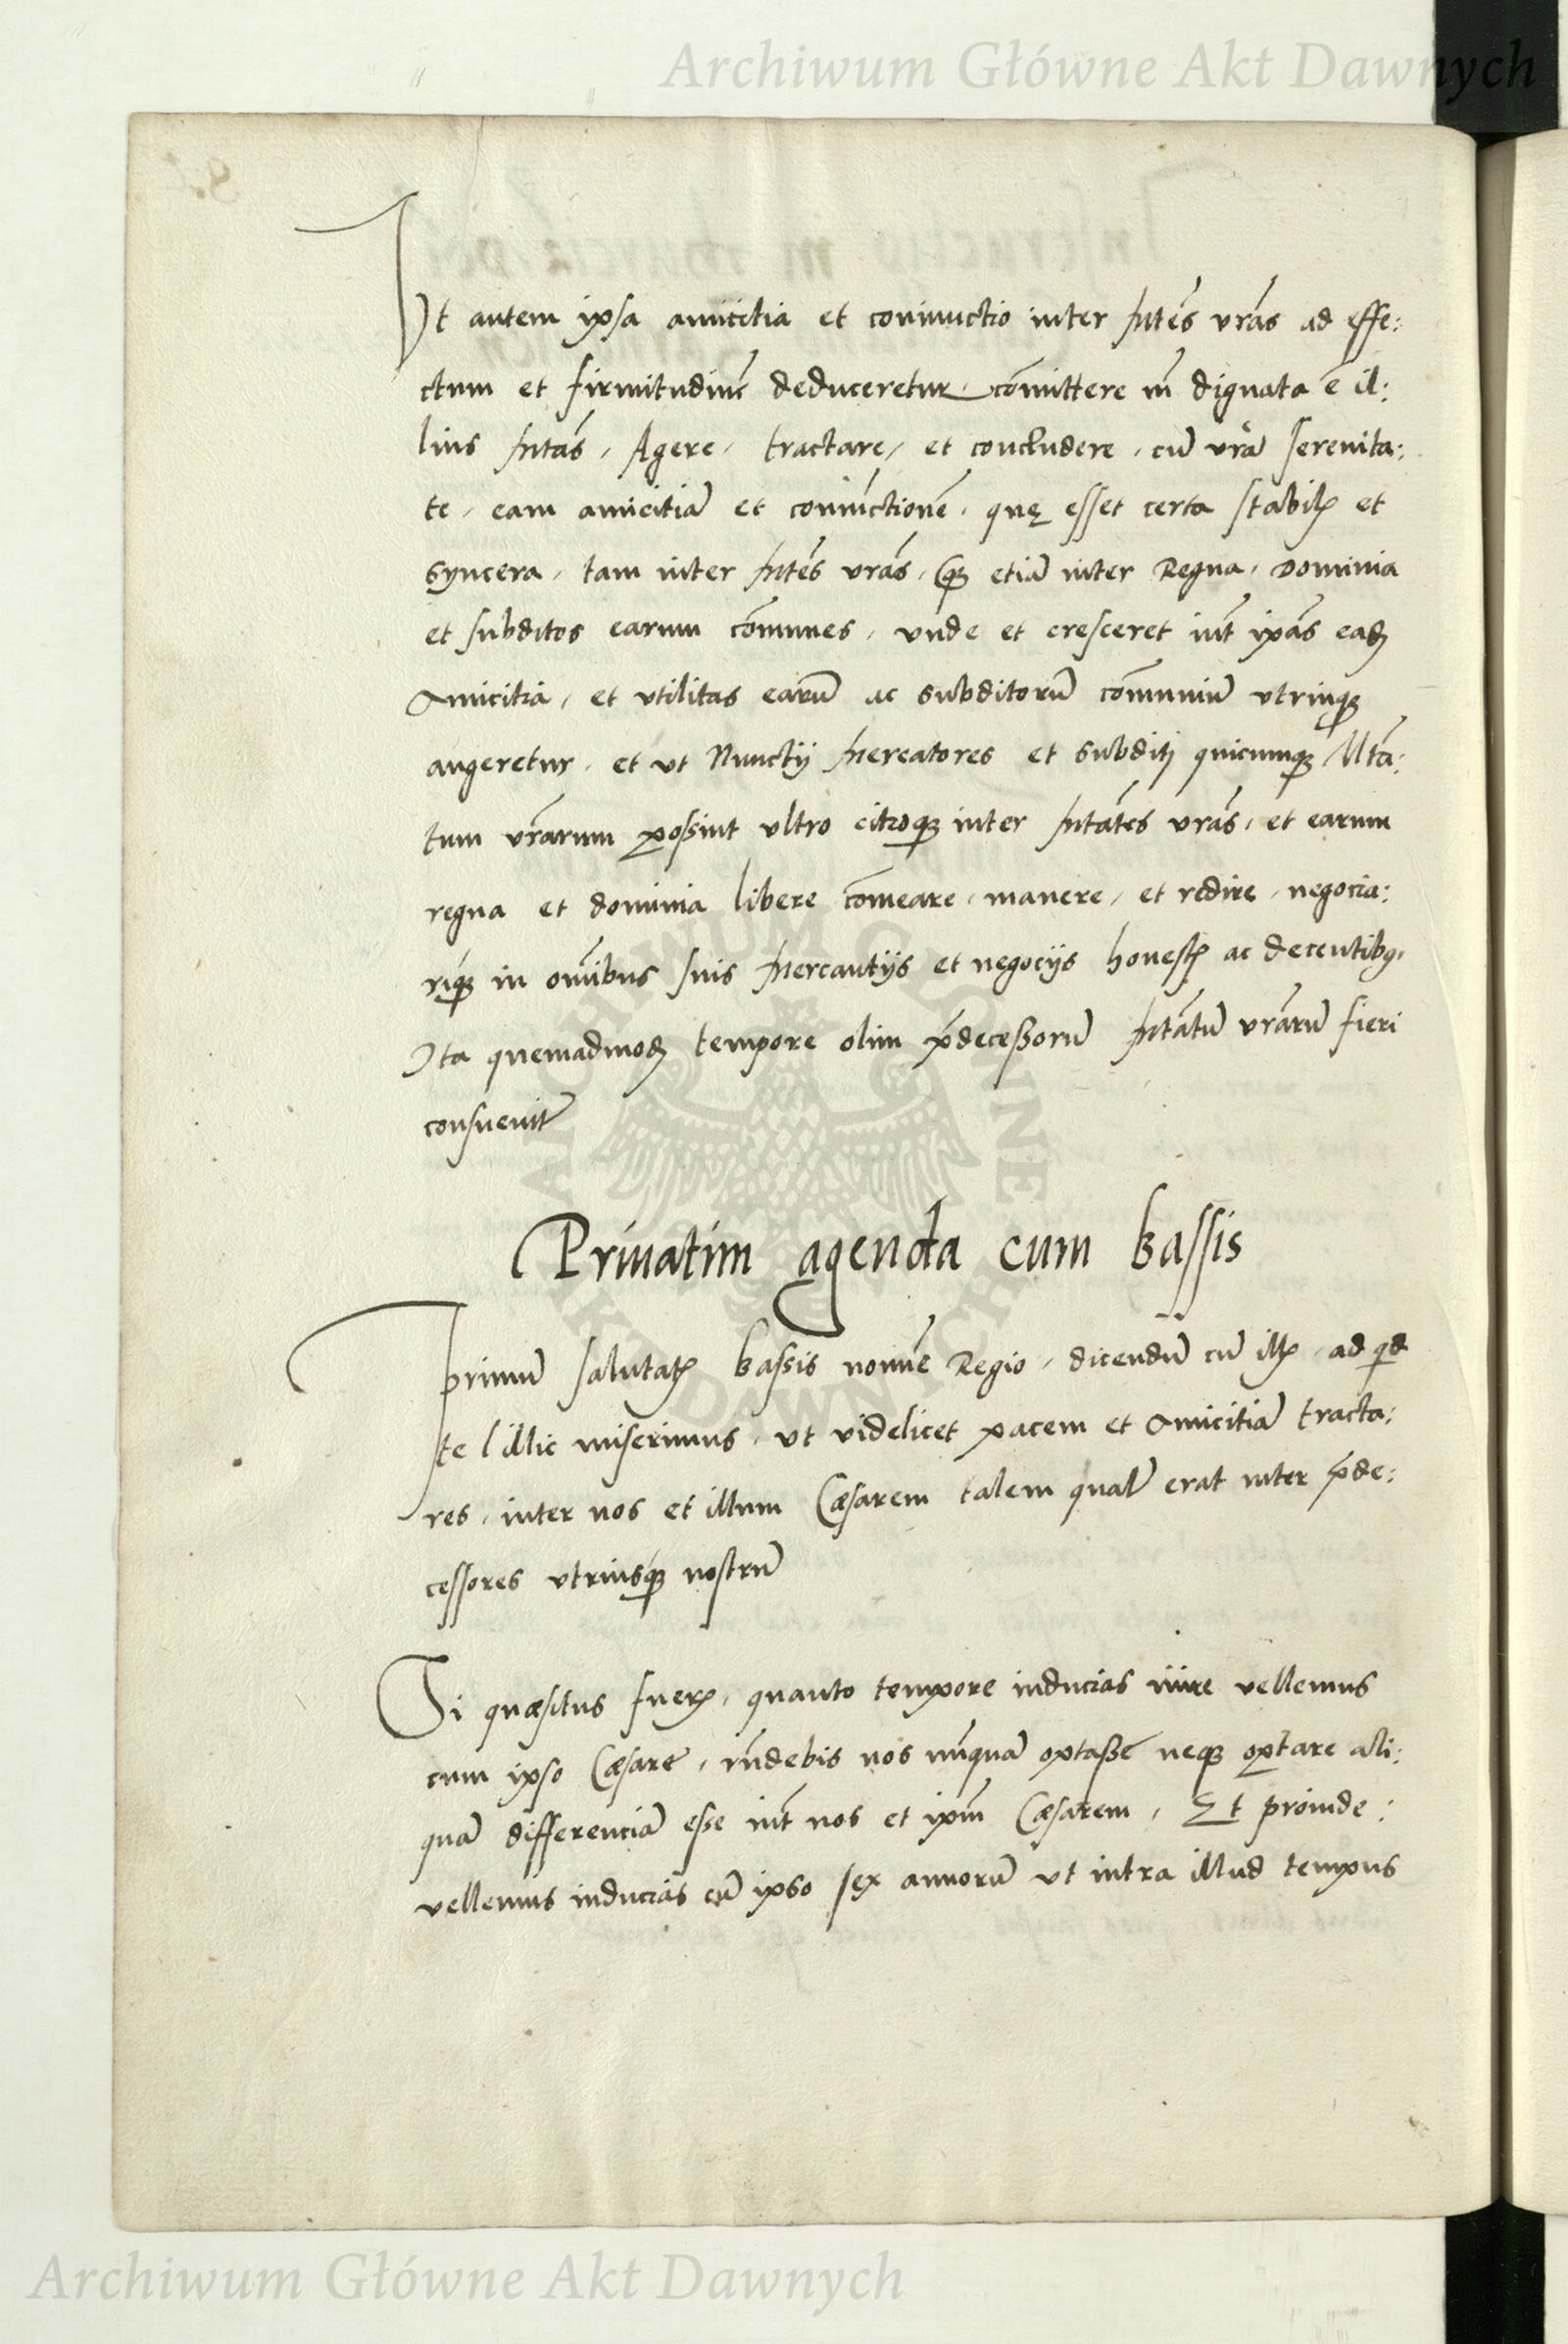 Archiwum Główne Akt Dawnych
Vt autem ipsa amicitia et coniunctio inter Mtēs vrās ad effe:
ctum et firmitudinē deduceretur, cōmittere m̄ dignata ē il:
lius Mtās, Agere, tractare, et concludere, cū vrā serenita:
te, eam amicitiā et coniūctionē, quę esset certa stabilꝭ et
syncera, tam inter Mtēs vrās, qꝫ etiā inter Regna, Dominia
et subditos earum cōmunes, vnde et cresceret int̄ ipās eadꝫ
Amicitia, et vtilitas earū ac subditorū cōmuniū vtrinqꝫ
augeretur, et ut Nunctij Mercatores et subditi quicunqꝫ Mtā:
tum vrārum possint vltro citroqꝫ inter Mtātes vrās, et earum
regna et dominia libere cōmeare, manere, et redire, negocia:
riqꝫ in om̄ibus suis Mercantijs et negocijs honestꝭ ac decentibꝫ,
Ita quemadmodꝫ tempore olim p̄decessorū Mtātū vrārū fieri
consueuit̄
Priuatim agenda cum bassis
Primū salutatꝭ bassis nomīe Regio, dicendū cū illꝭ, ad qd
te illic miserimus, vt videlicet pacem et Amicitiā tracta:
res, inter nos et illum Cæsarem talem qualē erat inter p̄de:
cessores vtriusqꝫ nostrū
Si quæsitus fuerꝭ, quanto tempore inducias inire vellemus
cum ipso Cæsare, rn̄debis nos nunquā optasse neqꝫ optare ali:
quā differenciā esse int̄ nos et ipm̄ Cæsarem, Et proinde:
vellemus inducias cū ipso sex annorū vt intra illud tempus
Archiwum Główne Akt Dawnych